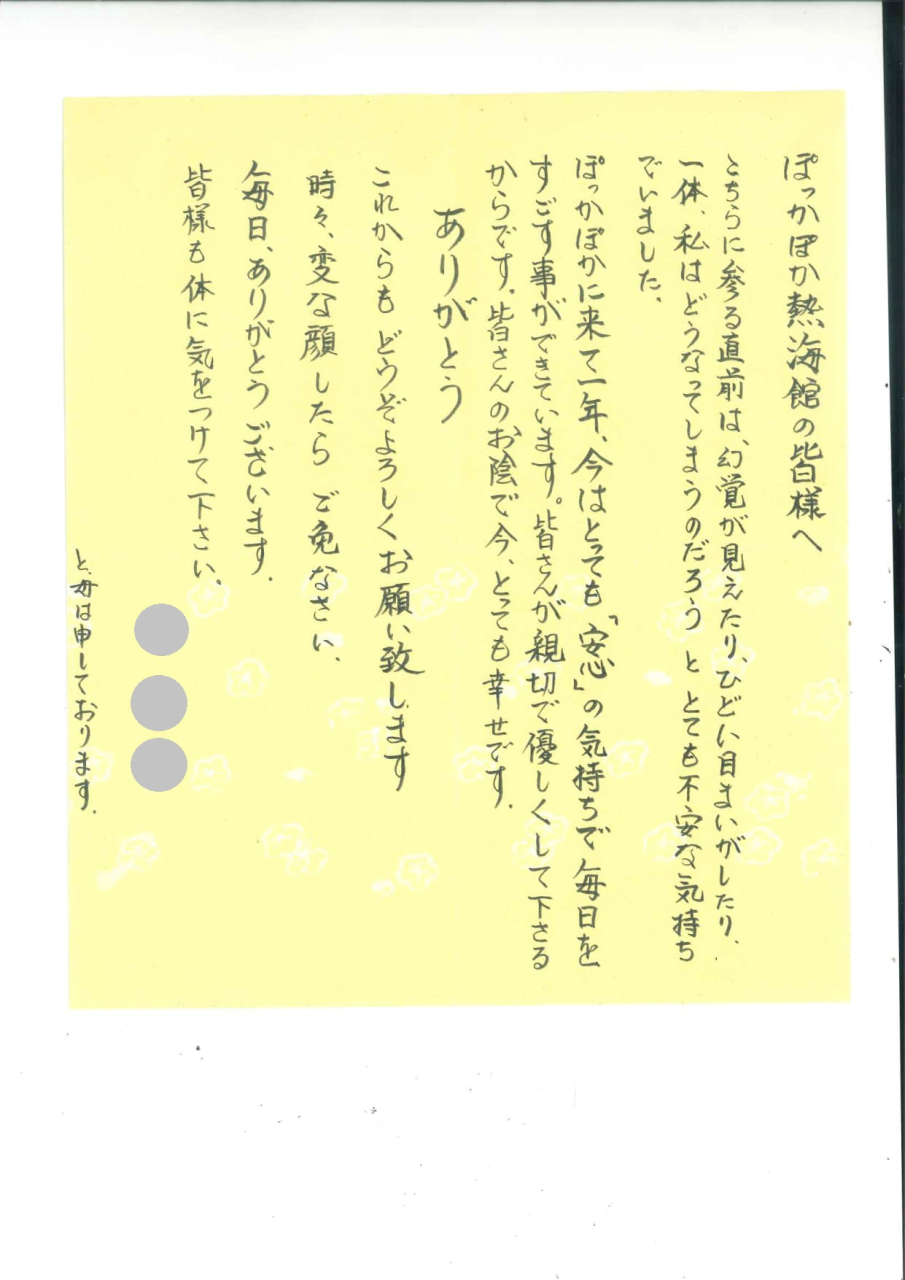 ぽっかぽか熱海館の皆様へ
こちらに参る直前は、幻覚が見えたり、ひどい目まいがしたり、
一体、私はどうなってしまうのだろう と とても不安な気持ち
でいました、
ぽっかぽかに来て一年、今はとっても「安心」の気持ちで毎日を
すごす事ができています。皆さんが親切で優しくして下さる
からです。皆さんのお陰で今、とっても幸せです。
ありがとう
これからも どうぞよろしくお願い致します
時々、変な顔したら ご免なさい、
毎日、ありがとうございます。
皆様も体に気をつけて下さい、
と、母は申しております。